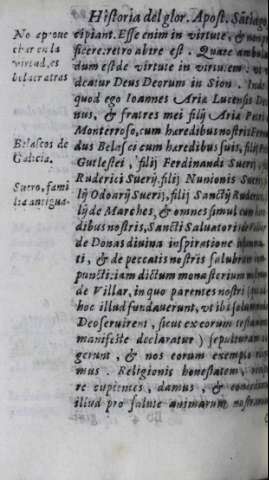 Historia del glor. Apost. Sãtiago
No aproue
char en la
virtud, es
boluer atras
Belascos de
Galicia.
Suero, fami
lia antigua.
cipiant. Esse enim in virtute, & non
ficere, retro abire est. Quare ambula
dum est de virtute in virtutem: ut
deatur Deus Deorum in Sion. Inde
quod ego Ioannes Aria Lucensis De
nus, & fratres mei filij Aria Petri
Monterroso, cum haredibus nostris Fernan
dus Belasci cum haredibus suis, filij
Gutlestei, filij Ferdinandi Suerij,
Ruderici Suerij, filij Nunionis Suerij
lij Odoarij Suerij, filij Sanctij
lij de Marches, & omnes simul cum
dibus nostris, Sancti Saluatoris de
de Donas diuina inspiratione
ti, & de peccatis nostris salubriter
puncti: iam dictum monasterium
de Villar, in quo parentes nostri
hoc illud fundauerunt, ut ibi
Deoseruirent, sicut ex eorum testamen
manifeste declaratur) sepulturam
gerunt, & nos eorum exemplo
mus. Religionis honestatem
re cupientes, damus, & concedimus
illud pro salute animarum nostrarum